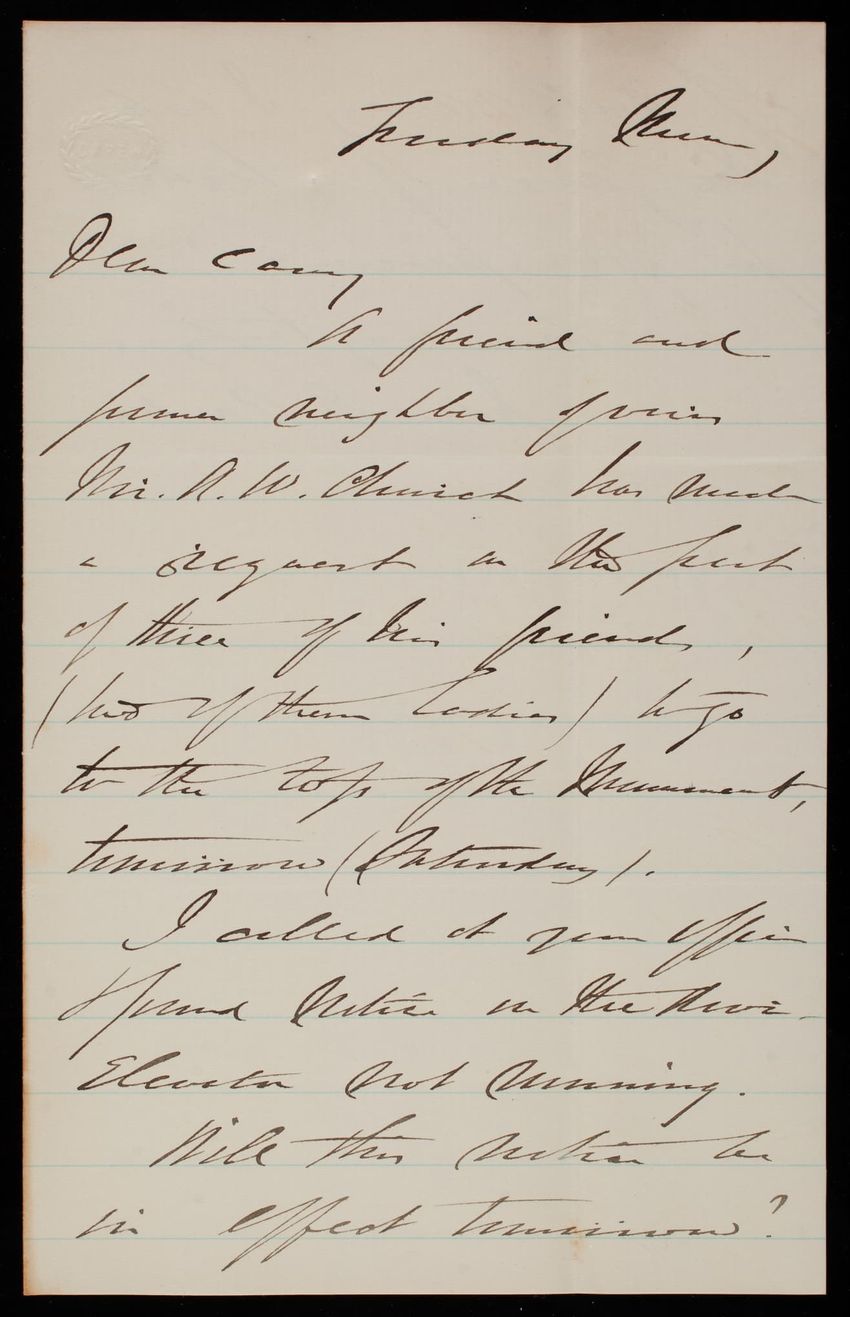 Friday Noon,
Dear Casey
A friend and
former neighbor of mine
Mr. A. W. Church has made
a request on the part
of three of his friends,
(two of them ladies) to go
to the top of the Monument,
tomorrow (Saturday).
I called at your office
& found notice on the door -
Elevator not running.
Will this notice be
in effect tomorrow?